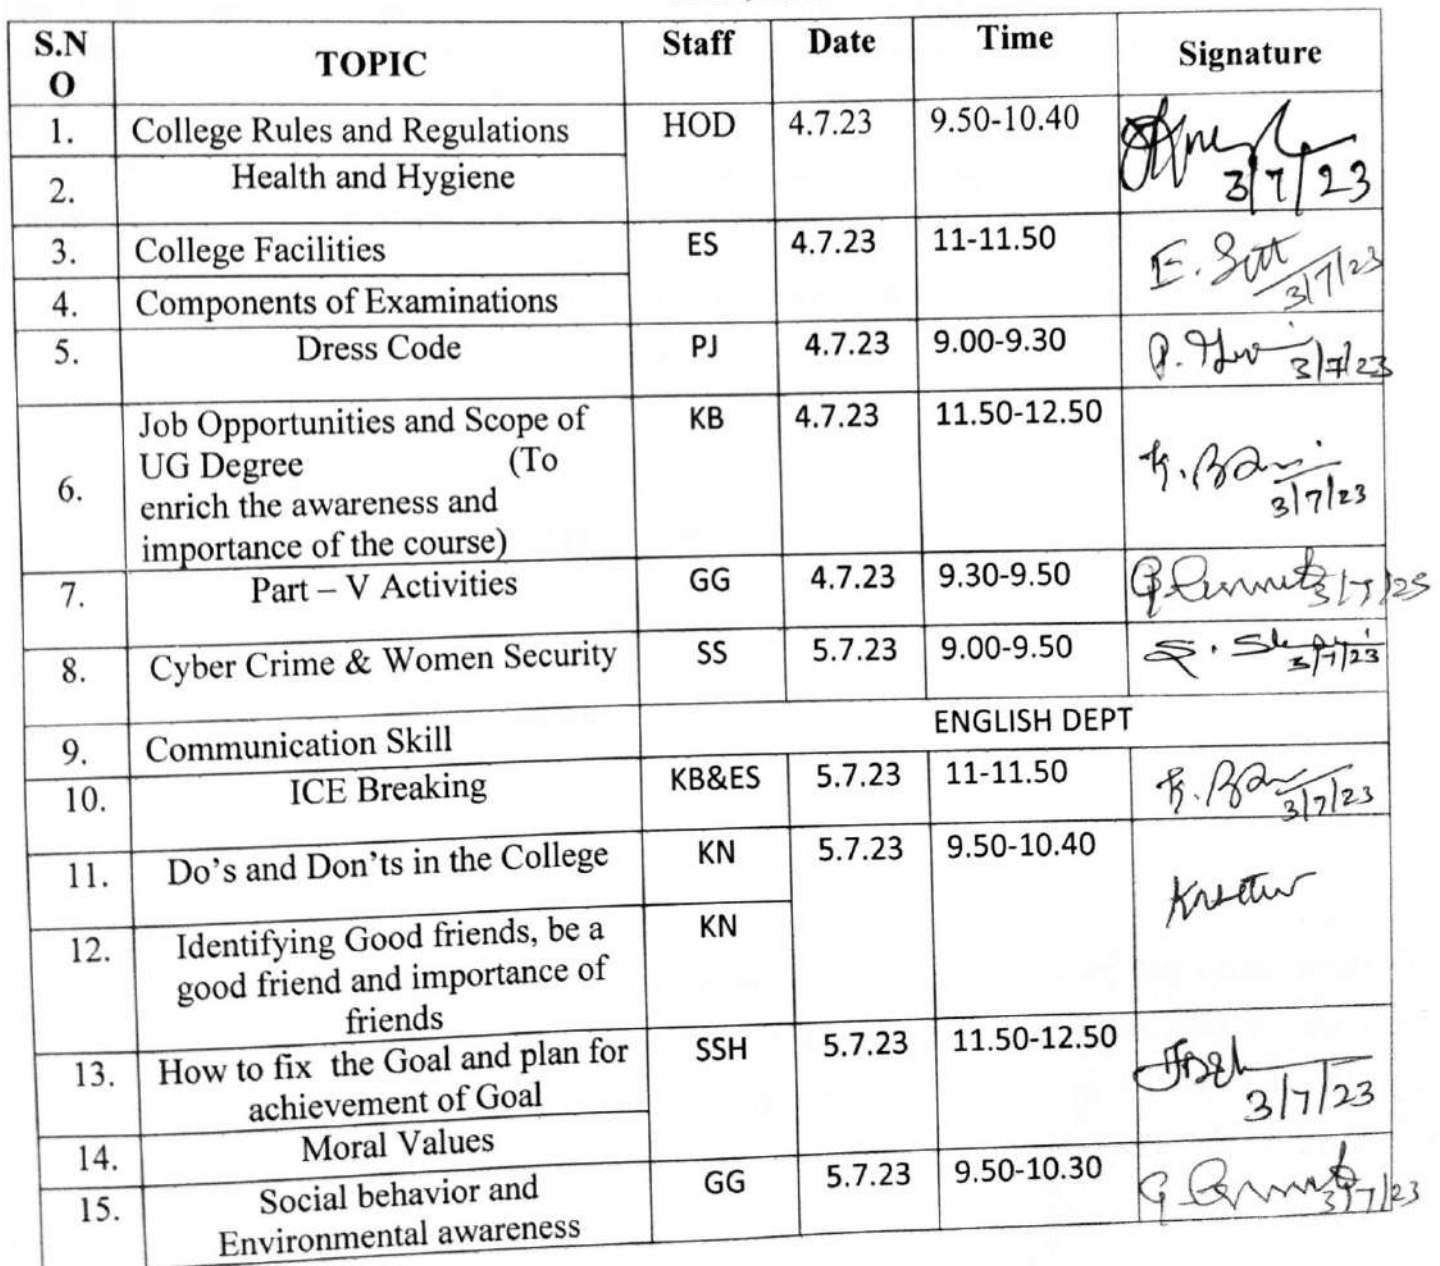 S.N
O
TOPIC
Staff
Date
Time
Signature
1.
College Rules and Regulations
HOD
4.7.23
9.50-10.40
3/7/23
2.
Health and Hygiene
3.
College Facilities
ES
4.7.23
11-11.50
E.
3/7/23
4.
Components of Examinations
5.
Dress Code
PJ
4.7.23
9.00-9.30
P.
3/7/23
6.
Job Opportunities and Scope of
UG Degree (To
enrich the awareness and
importance of the course)
KB
4.7.23
11.50-12.50
K.
3/7/23
7.
Part – V Activities
GG
4.7.23
9.30-9.50
G
3/7/23
8.
Cyber Crime & Women Security
SS
5.7.23
9.00-9.50
S.
3/7/23
9.
Communication Skill
ENGLISH DEPT
10.
ICE Breaking
KB&ES
5.7.23
11-11.50
K.
3/7/23
11.
Do's and Don'ts in the College
KN
5.7.23
9.50-10.40
12.
Identifying Good friends, be a
good friend and importance of
friends
KN
13.
How to fix the Goal and plan for
achievement of Goal
SSH
5.7.23
11.50-12.50
3/7/23
14.
Moral Values
15.
Social behavior and
Environmental awareness
GG
5.7.23
9.50-10.30
G
3/7/23